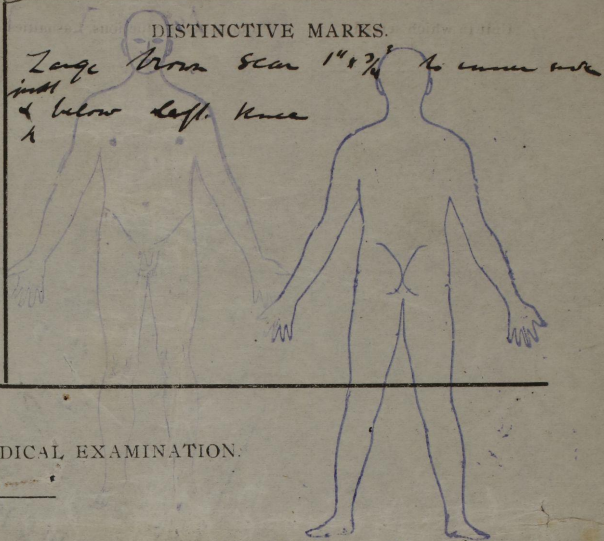 DISTINCTIVE MARKS.
Large brown scar 1" x 3/4" to inner side
just
& below left. Knee
DICAL EXAMINATION.